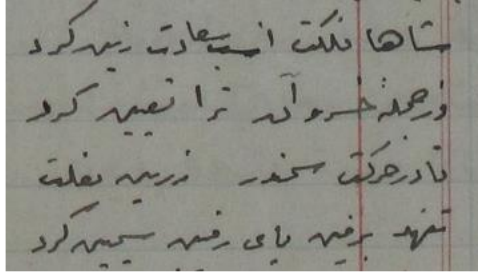 شاها فلکت اسب سعادت زین کرد
وز جملهٔ خسروان ترا تعیین کرد
تا در حرکت سمند زرین نعلت
ننهد بزمین پای زمین سیمین کرد